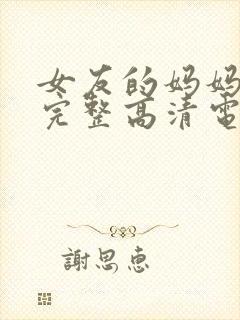 女友的妈妈
完整高清電
謝思惠